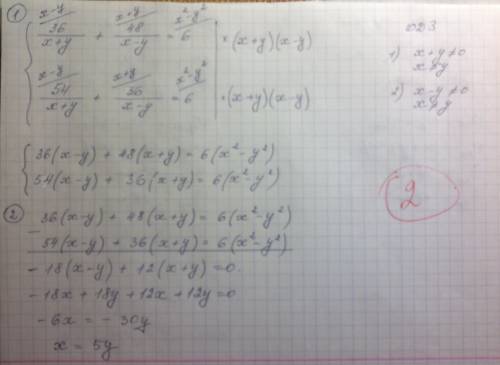 1) x-y x+y x²-y²
36/(x+y) + 48/(x-y) = 6 | ·(x+y)(x-y)
x-y x+y x²-y²
54/(x+y) + 36/(x-y) = 6 | ·(x+y)(x-y)
ОДЗ
1) x+y≠0
x≠y
2) x-y≠0
x≠y
36(x-y) + 48(x+y) = 6(x²-y²)
54(x-y) + 36(x+y) = 6(x²-y²)
2) - 36(x-y) + 48(x+y) = 6(x²-y²)
54(x-y) + 36(x+y) = 6(x²-y²)
- 18(x-y) + 12(x+y) = 0.
- 18x + 18y + 12x + 12y = 0
- 6x = - 30y
x = 5y
2